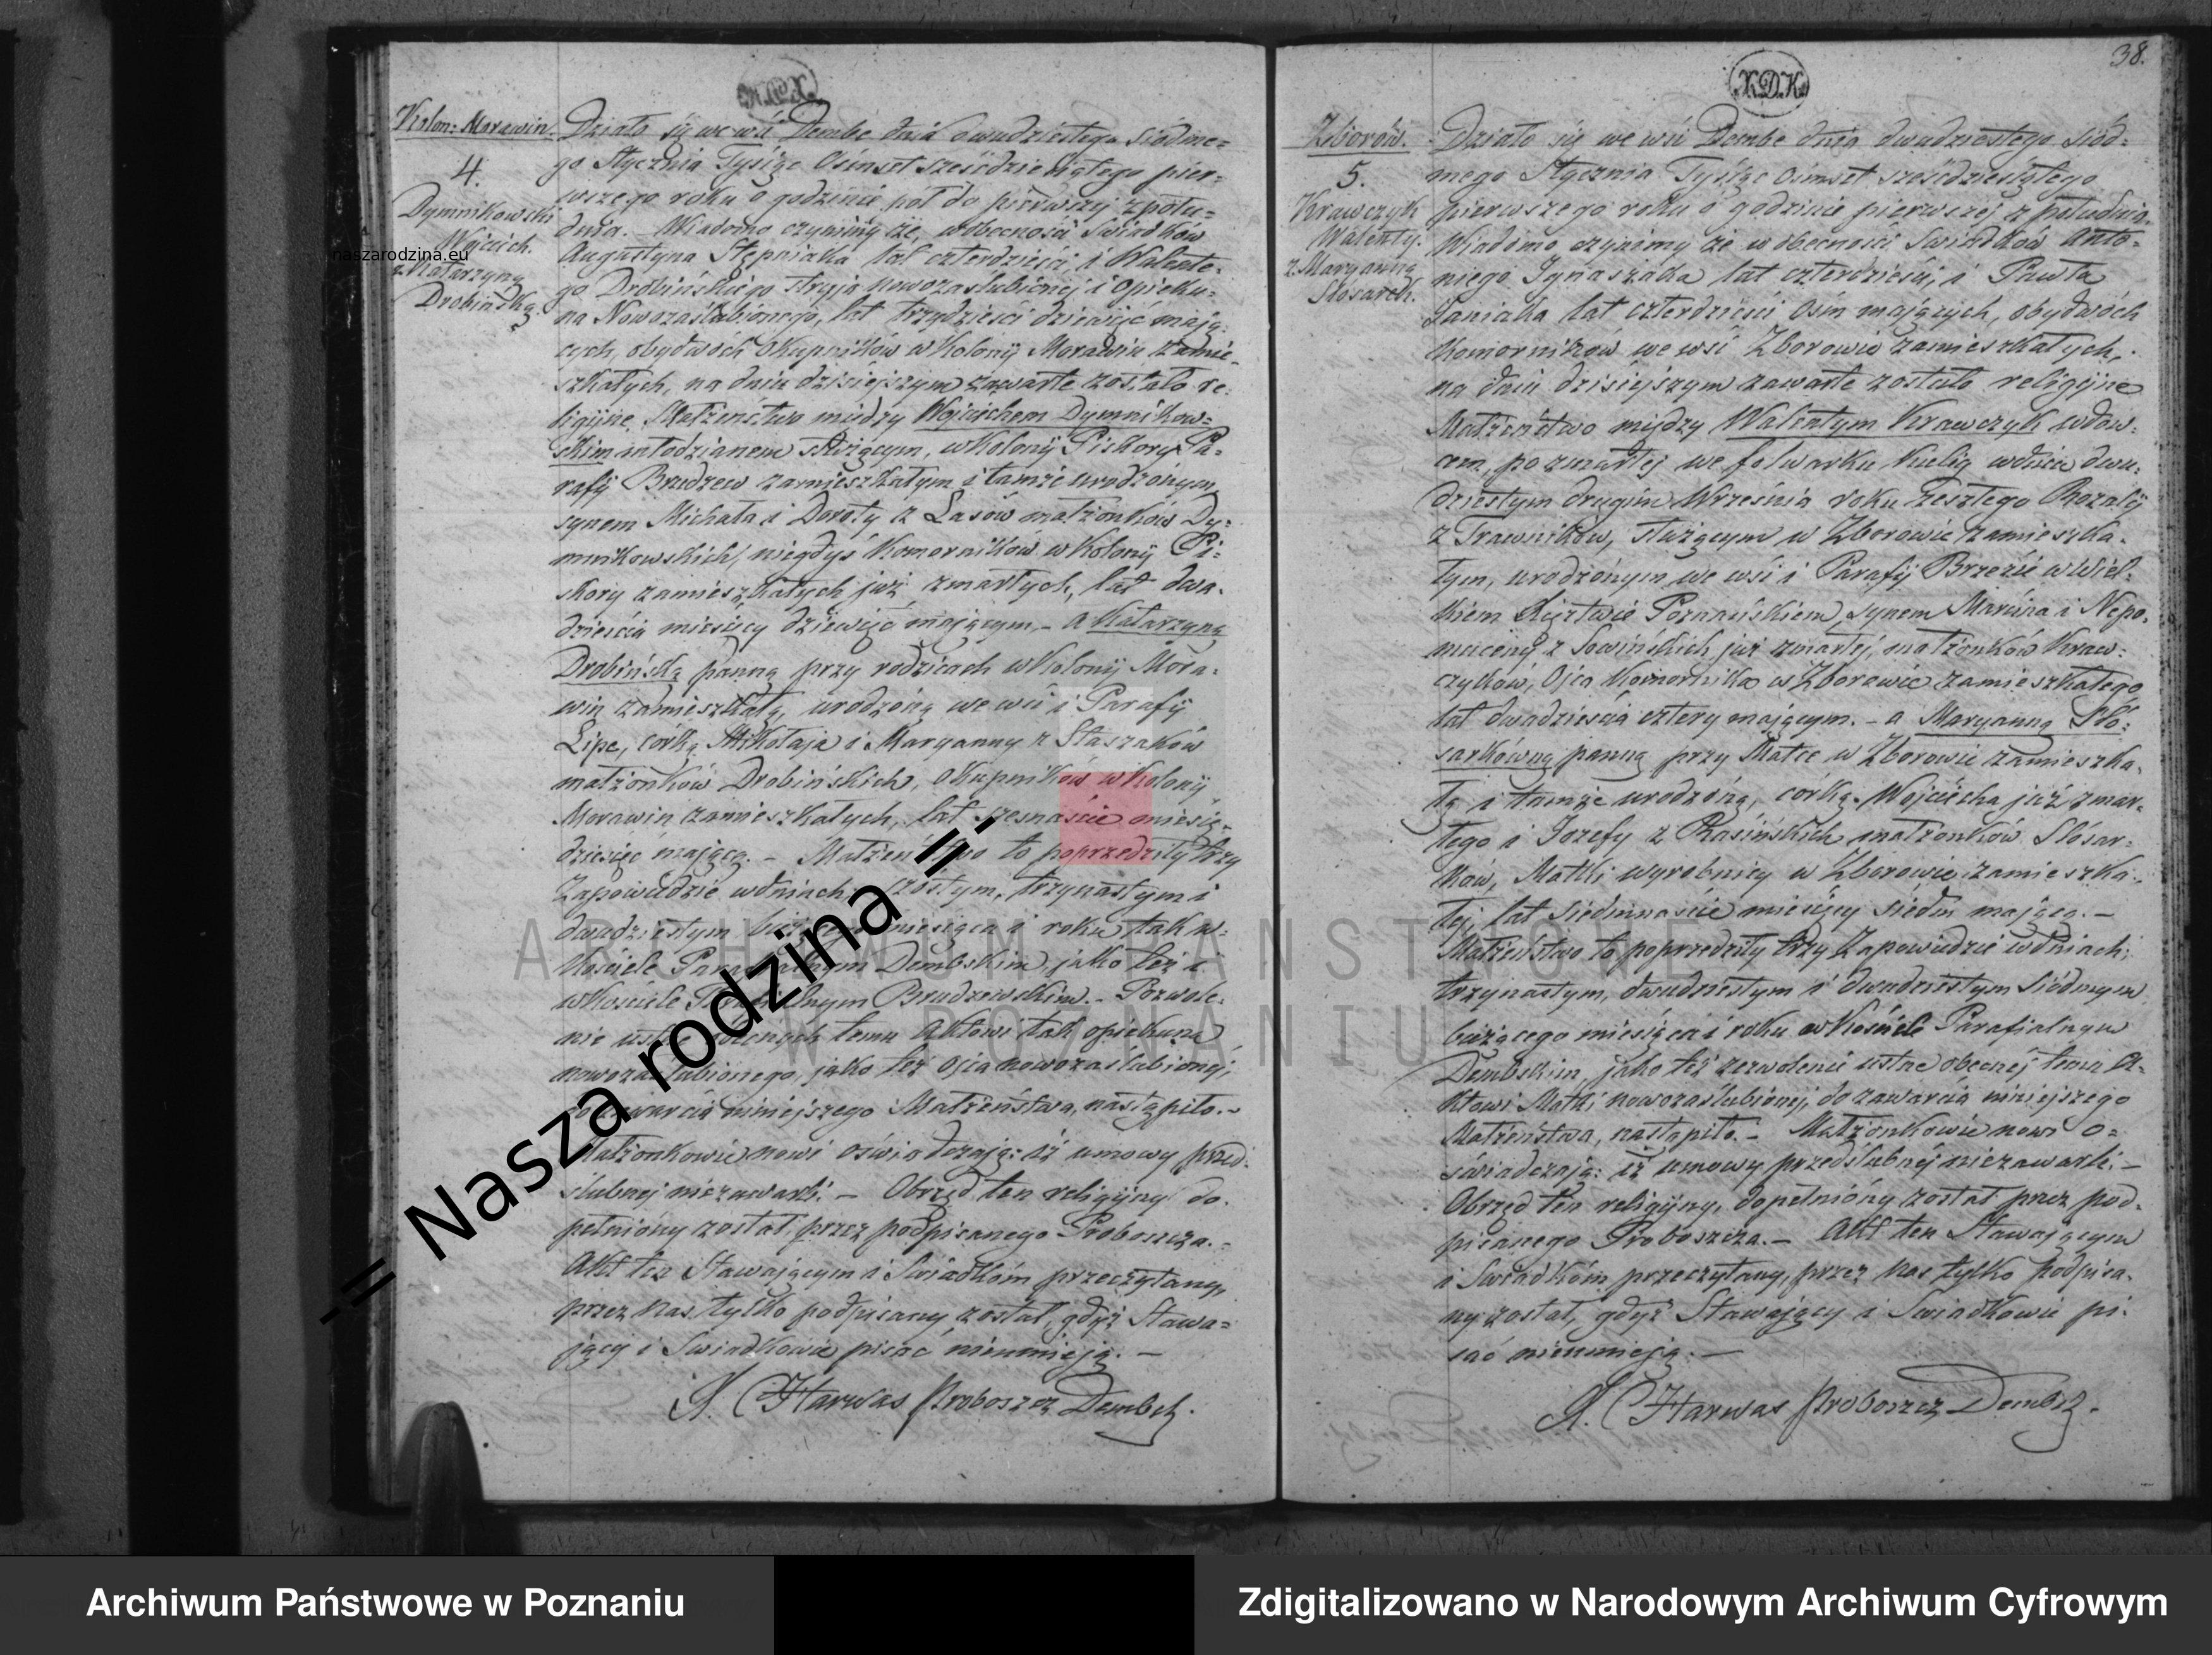 Kolon: Morawin.
4.
Dymnikowski
Wojciech.
z Katarzyną
Drobińską.
Działo się we wsi Dembe dnia dwudziestego siódme=
go Stycznia Tysiąc Ośmset sześćdziesiątego pier=
wszego roku o godzinie pół do pierwszej z połu=
dnia. – Wiadomo czyniemy że, w obecności Świadków
Augustyna Stępniaka lat czterdzieści, i Walente=
go Drobińskiego stryja nowozaślubionej i opieku=
na Nowozaślubionego, lat trzydzieści dziewięć mają=
cych, obydwóch Okupników w Kolonij Morawin zamie=
szkałych, na dniu dzisiejszym zawarte zostało re=
ligijne Małżeństwo między Wojciechem Dymnikow=
skim młodzianem służącym, w Kolonij Piskory Pa=
rafij Brudzew zamieszkałym i tamże urodzonym,
synem Michała i Doroty z Lasów małżonków Dy=
mnikowskich, niegdyś Komorników w Kolonij Pi=
skory zamieszkałych już zmarłych, lat dwa=
dzieścia miesięcy dziewięć mającym, – a Katarzyną
Drobińską panną przy rodzicach w Kolonij Mora=
win zamieszkałą, urodzoną we wsi i Parafij
Lipe, córką Mikołaja i Maryanny z Staszaków
małżonków Drobińskich, Okupników w Kolonij
Morawin zamieszkałych, lat szesnaście miesię=
dziesięć mającą. – Małżeństwo to poprzedziły trzy
Zapowiedzie w dniach: szóstym, trzynastym i
dwudziestym bieżącego miesiąca i roku tak w=
Kościele Parafialnym Dembskim, jako też i
w Kościele Parafialnym Brudzewskim. – Pozwole=
nie ustne obecnych temu Aktowi tak opiekuna
nowozaślubionego, jako też Ojca nowozaślubionej,
do zawarcia niniejszego Małżeństwa, nastąpiło. –
Małżonkowie nowi oświadczają: iż umowy przed=
ślubnej niezawarli. – Obrzęd ten religijny do=
pełniony został przez podpisanego Proboszcza. –
Akt ten Stawającym i Świadkom przeczytany,
przez Nas tylko podpisany został, gdyż Stawa=
jący i Świadkowie pisać nieumieją. –
X. Harwas Proboszcz Dembsk.
38.
XDK
Zborów.
5.
Krawczyk
Walenty.
z Maryanną
Slósarek.
Działo się we wsi Dembe dnia dwudziestego siód=
mego Stycznia Tysiąc Ośmset sześćdziesiątego
pierwszego roku o godzinie pierwszej z południa.
Wiadomo czyniemy że w obecności Świadków Anto=
niego Ignaszaka lat czterdzieści, i Pawła
Janiaka lat czterdzieści ośm mających, obydwóch
Komorników we wsi Zborowie zamieszkałych,
na dniu dzisiejszym zawarte zostało religijne
Małżeństwo między Walentym Krawczyk wdow=
cem, po zmarłej we folwarku Kuelig w dniu dwu=
dziestym drugim Września roku zeszłego Rozalij
z Trawników, służącym w Zborowie zamieszka=
łym, urodzonym we wsi i Parafij Brzezie w Wiel=
kiem Xięztwie Poznańskiem, synem Marcina i Nepo=
muceny z Sowińskich już zmarłej, małżonków Kraw=
czyków, Ojca Komornika w Zborowie zamieszkałego
lat dwadzieścia cztery mającym. – a Maryanną Sló=
sarkówną panną przy Matce w Zborowie zamieszka=
łą i tamże urodzoną, córką Wojciecha już zmar=
łego i Józefy z Rasińskich małżonków Slósar=
ków, Matki wyrobnicy w Zborowie zamieszka=
łej, lat siedmnaście miesięcy siedm mającą. –
Małżeństwo to poprzedziły trzy Zapowiedzie w dniach:
trzynastym, dwudziestym i dwudziestym siódmym
bieżącego miesiąca i roku w Kościele Parafialnym
Dembskim, jako też zezwolenie ustne obecnej temu A=
ktowi Matki nowozaślubionej, do zawarcia niniejszego
Małżeństwa, nastąpiło. – Małżonkowie nowi o=
świadczają: iż umowy przedślubnej niezawarli. –
Obrzęd ten religijny, dopełniony został przez pod=
pisanego Proboszcza. – Akt ten Stawającym
i Świadkom przeczytany, przez Nas tylko podpisa=
ny został, gdyż Stawający i Świadkowie pi=
sać nieumieją. –
X. Harwas Proboszcz Dembsk.
naszarodzina.eu
-= Nasza rodzina =-
ARCHIWUM PAŃSTWOWE
W POZNANIU
Archiwum Państwowe w Poznaniu
Zdigitalizowano w Narodowym Archiwum Cyfrowym